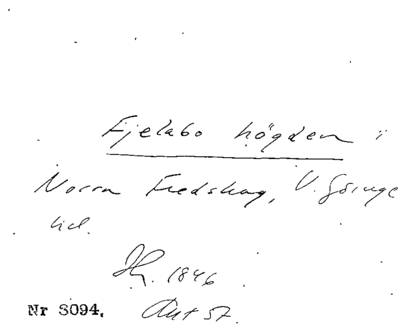 Fjelabo högden i
Norra Fredskog, V. Göinge
hd.
1846
Nr S094. Ant 57